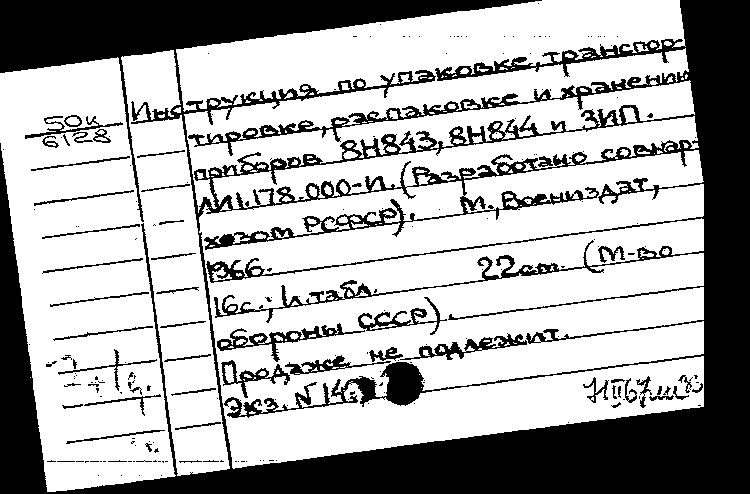 50к
6128
Инструкция по упаковке, транспор-
тировке, распаковке и хранению
приборов 8Н843, 8Н844 и ЗИП.
ЛИ1.178.000-И. (Разработано совнар-
хозом РСФСР). М., Воениздат,
1966.
16с.; и.табл. 22см. (М-во
обороны СССР).
Продаже не подлежит.
Экз. N 14